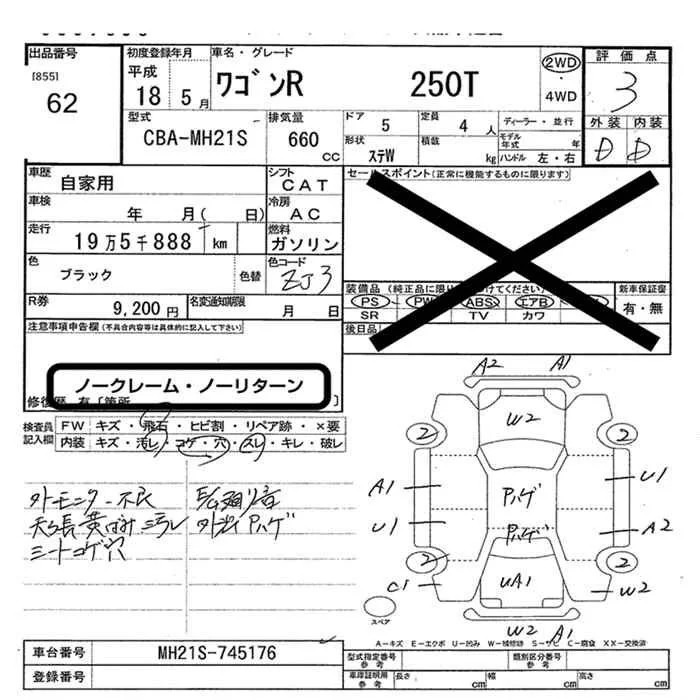 出品番号 初度登録年月 車名・グレード 評価点
[855] 62
平成 18 5月 ワゴンR 250T 2WD・4WD 3
型式 排気量 ドア 5 定員 4人 ディーラー・並行 外装 内装
CBA-MH21S 660cc 形状 ステW 積載 kg モデル年式 年 ハンドル 左・右 D D
車歴 自家用 シフト CAT セールスポイント(正常に機能するものに限ります)
車検 年 月( 日) 冷房 AC
走行 19万5千888 km 燃料 ガソリン
色 ブラック 色替 色コード ZJ3 装備品 新車保証書
PS PW ABS エアB 有・無
R券 9,200円 名変通知期限 月 日 SR TV カワ
注意事項申告欄(不具合内容等は具体的に記入して下さい) 後日品
ノークレーム・ノーリターン
修復歴 有
検査員記入欄 FW キズ・飛石・ヒビ割・リペア跡・×要
内装 キズ・汚レ・コゲ・穴・スレ・キレ・破レ
外モニター不良
シートコゲ穴
A2 A1
W2
2 2
A1 ハゲ U1
U1 ハゲ A2
2 2
C1 UA1 W2
スペア W2 A1
A-キズ E-エクボ U-凹み W-補修跡 S-サビ C-腐食 XX-交換済
車台番号 MH21S-745176 型式指定番号 参考 類別区分番号 参考
登録番号 車庫証明用 参考 長さ cm 幅 cm 高さ cm